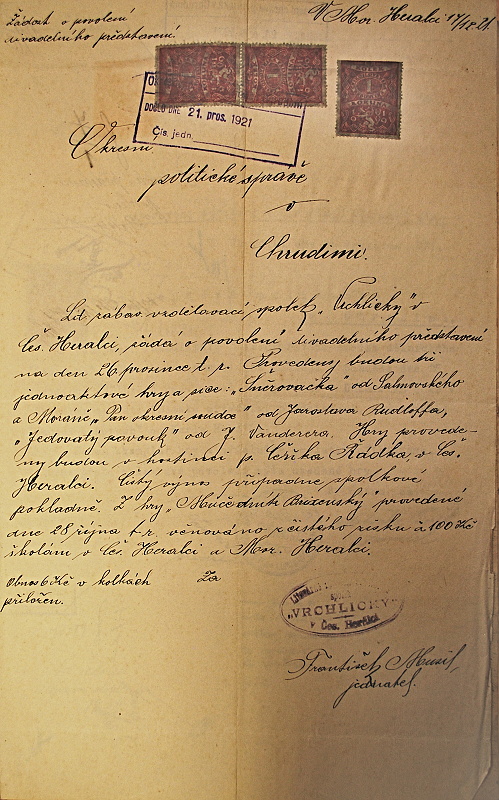 Žádost o povolení
divadelního představení.
V Mor. Heralci 17/12 21.
DOŠLO DNE 21. pros. 1921
Čís. jedn.
1
KORUNA
Okresní
politické správě
v
Chrudimi.
Lid. zábav. vzdělavací spolek „Vrchlický" v
Čes. Heralci, žádá o povolení divadelního představení
na den 26. prosince t. r. Provedeny budou tři
jednoaktové hry a sice: „Šněrovačka" od Salmovského
a Moráně „Pan okresní soudce" od Jaroslava Rudloffa,
„Jedovatý pavouk" od J. Vanderera. Hry provede-
ny budou v hostinci p. Čeňka Řádka, v Čes.
Heralci. Čistý výnos připadne spolkové
pokladně. Z hry „Mučedník Brixenský" provedené
dne 28 října t. r. věnováno z čistého zisku à 100 Kč
školám v Čes. Heralci a Mor. Heralci.
Obnos 6 Kč v kolkách
přiložen.
Za
„VRCHLICKÝ"
v Čes. Heralci
František Musil,
jednatel.